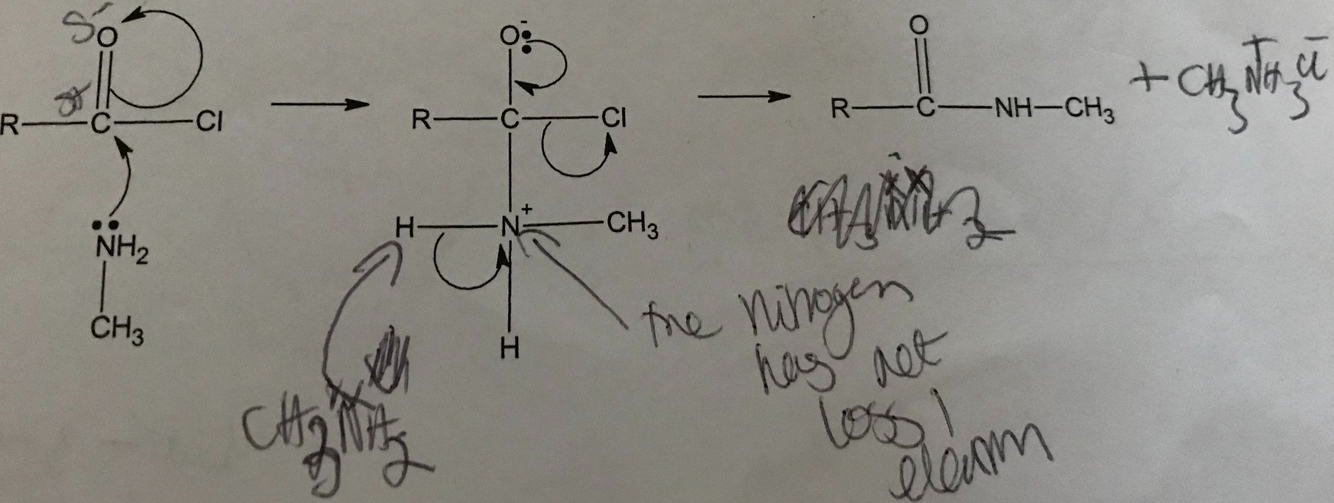 O
O
R
C
Cl
NH₂
CH₃
O⁻
R
C
Cl
H
N⁺
CH₃
H
O
R
C
NH
CH₃
+ CH₃N⁺H₃Cl⁻
CH₃NH₂
the nitrogen
has net
loss 1